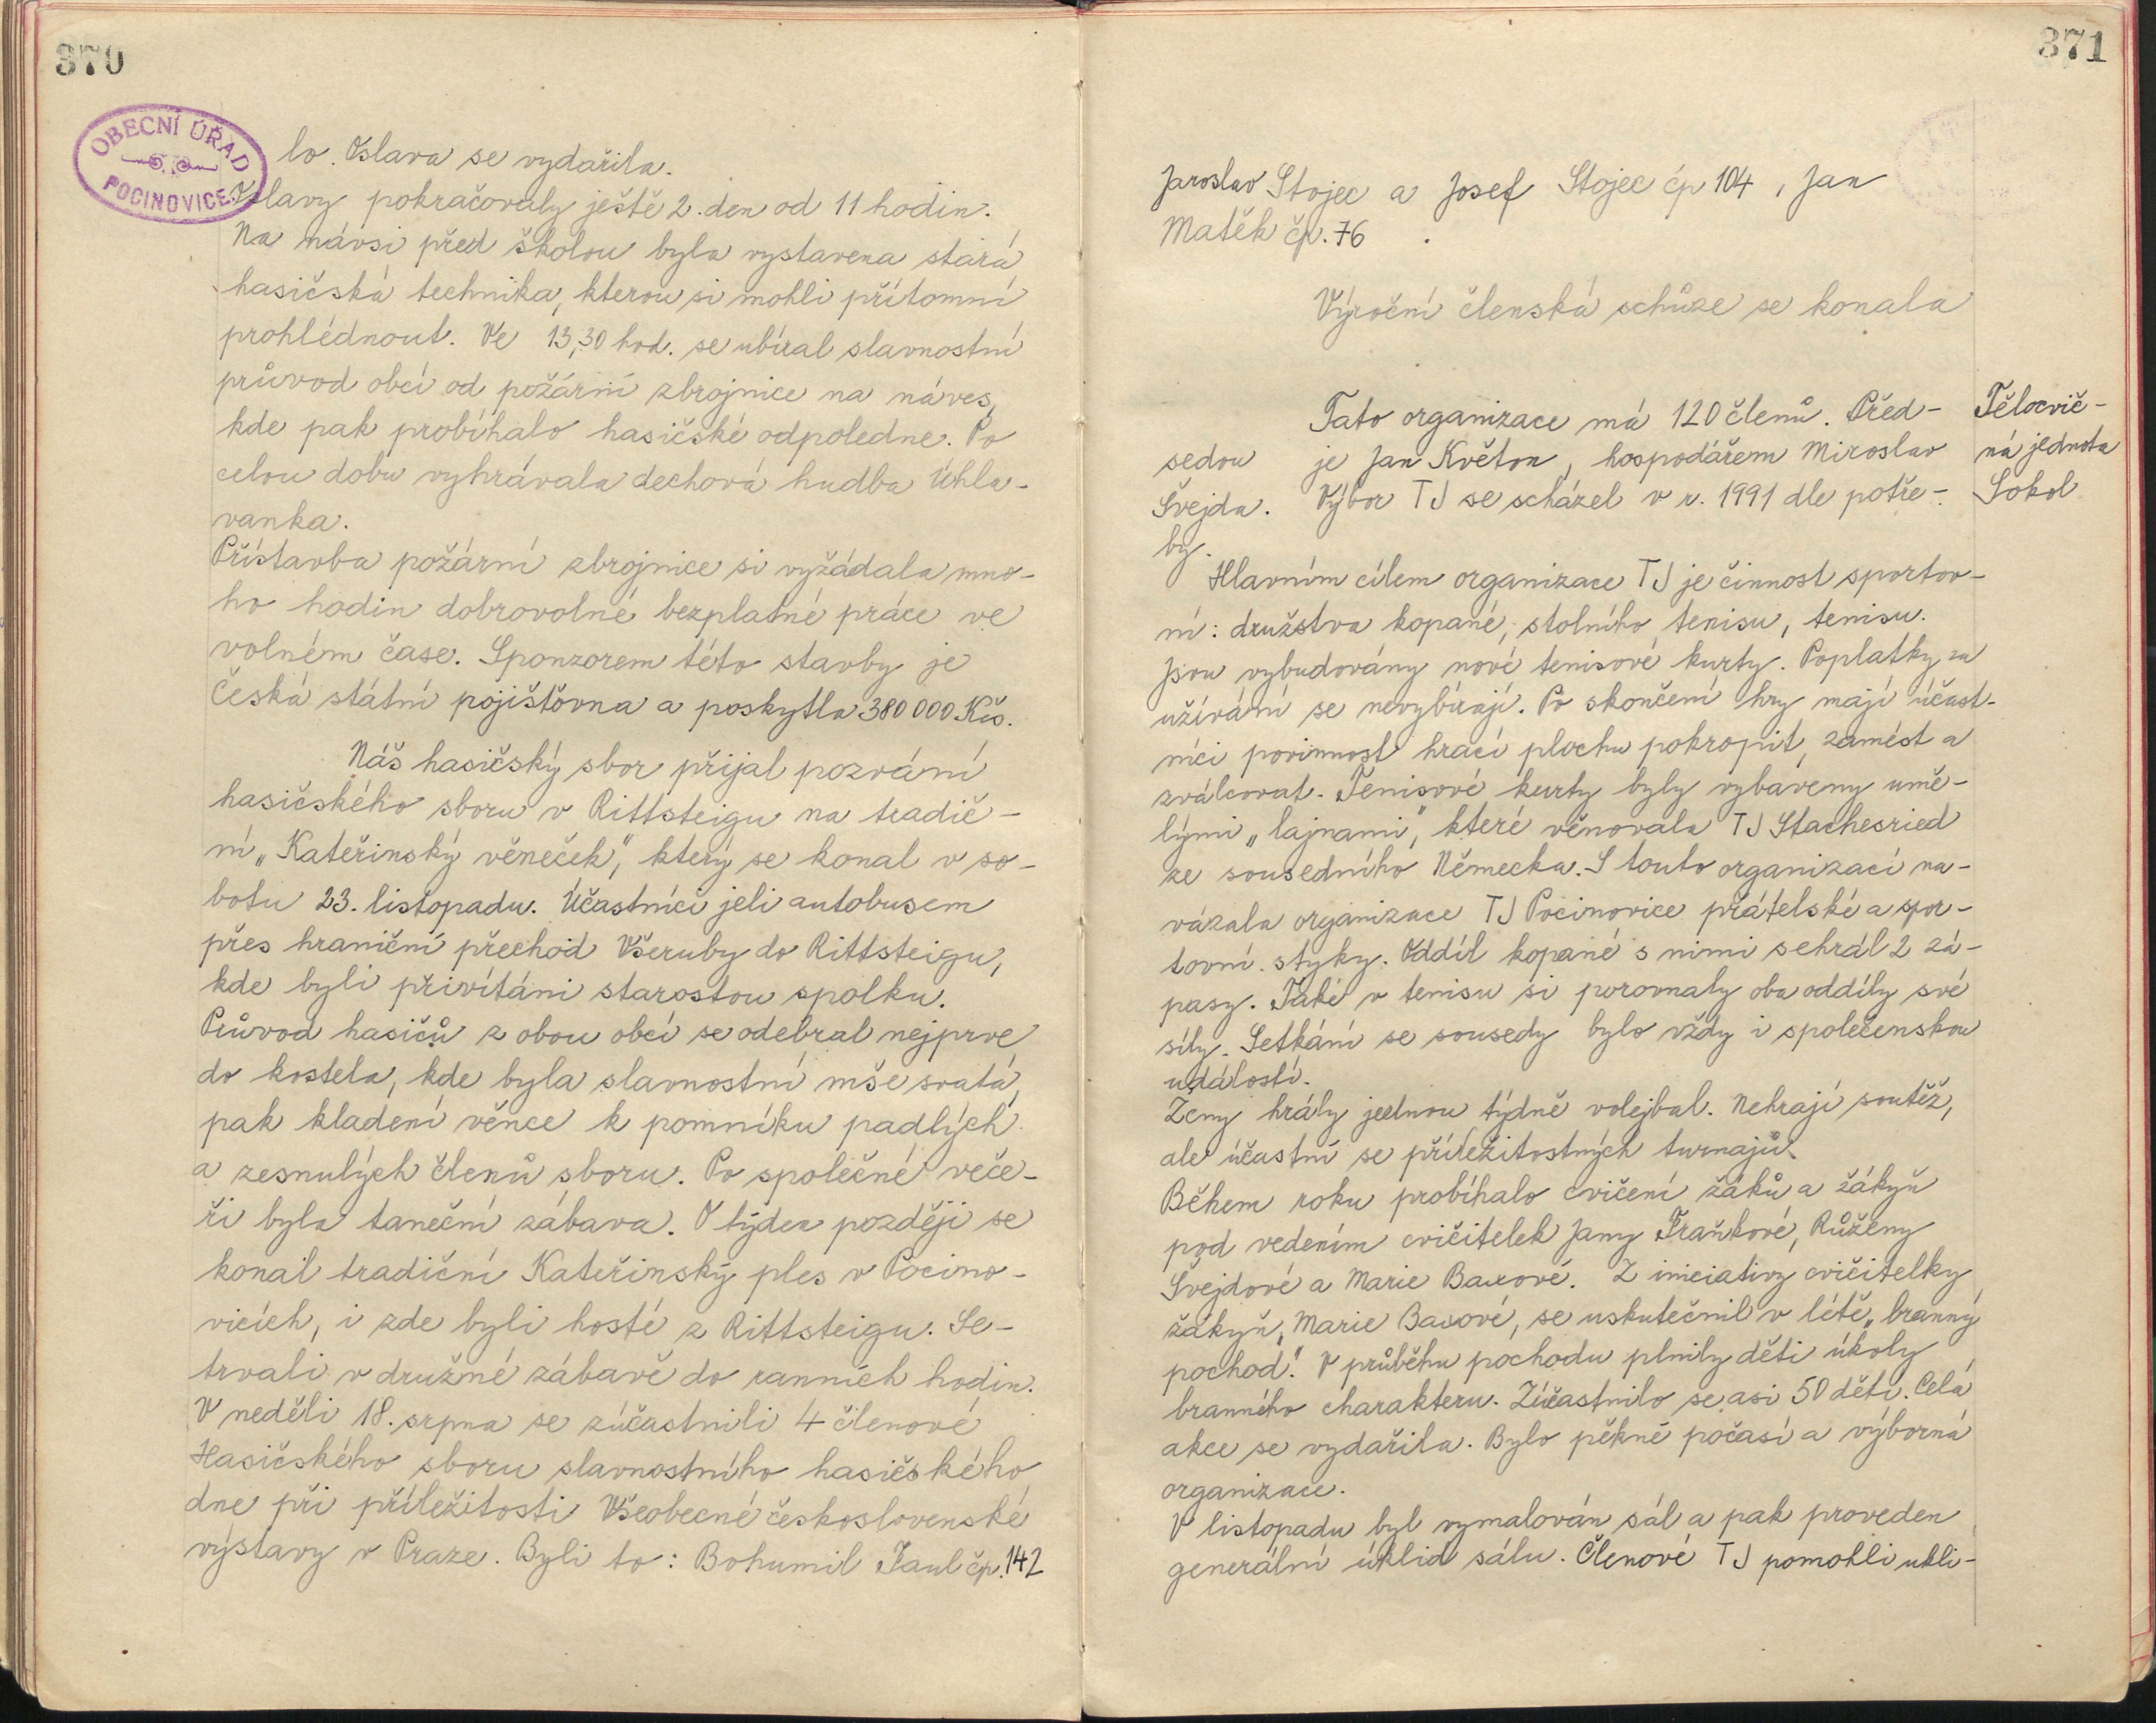 370
OBECNÍ ÚŘAD
POCINOVICE
lo. Oslava se vydařila.
Oslavy pokračovaly ještě 2. den od 11 hodin.
Na návsi před školou byla vystavena stará
hasičská technika, kterou si mohli přítomní
prohlédnout. Ve 13,30 hod. se ubíral slavnostní
průvod obcí od požární zbrojnice na náves,
kde pak probíhalo hasičské odpoledne. Po
celou dobu vyhrávala dechová hudba Úhla-
vanka.
Přístavba požární zbrojnice si vyžádala mno-
ho hodin dobrovolné bezplatné práce ve
volném čase. Sponzorem této stavby je
Česká státní pojišťovna a poskytla 380 000 Kčs.
Náš hasičský sbor přijal pozvání
hasičského sboru v Rittsteigu na tradič-
ní „Kateřinský věneček", který se konal v so-
botu 23. listopadu. Účastníci jeli autobusem
přes hraniční přechod Všeruby do Rittsteigu,
kde byli přivítáni starostou spolku.
Průvod hasičů z obou obcí se odebral nejprve
do kostela, kde byla slavnostní mše svatá,
pak kladení věnce k pomníku padlých
a zesnulých členů sboru. Po společné veče-
ři byla taneční zábava. O týden později se
konal tradiční Kateřinský ples v Pocino-
vicích, i zde byli hosté z Rittsteigu. Se-
trvali v družné zábavě do ranních hodin.
V neděli 18. srpna se zúčastnili 4 členové
Hasičského sboru slavnostního hasičského
dne při příležitosti Všeobecné československé
výstavy v Praze. Byli to: Bohumil Taul čp. 142
371
Jaroslav Stojec a Josef Stojec čp 104, Jan
Matěk čp. 76
Výroční členská schůze se konala
Tělocvič-
ná jednota
Sokol
Tato organizace má 120 členů. Před-
sedou je Jan Květon, hospodářem Miroslav
Švejda. Výbor TJ se scházel v r. 1991 dle potře-
by.
Hlavním cílem organizace TJ je činnost sportov-
ní: družstva kopané, stolního tenisu, tenisu.
Jsou vybudovány nové tenisové kurty. Poplatky za
užívání se nevybírají. Po skončení hry mají účast-
níci povinnost hrací plochu pokropit, zamést a
zválcovat. Tenisové kurty byly vybaveny umě-
lými „lajnami", které věnovala TJ Stachesried
ze sousedního Německa. S touto organizací na-
vázala organizace TJ Pocinovice přátelské a spor-
tovní styky. Oddíl kopané s nimi sehrál 2 zá-
pasy. Také v tenisu si porovnaly oba oddíly své
síly. Setkání se sousedy bylo vždy i společenskou
událostí.
Ženy hrály jednou týdně volejbal. Nehrají soutěž,
ale účastní se příležitostných turnajů.
Během roku probíhalo cvičení žáků a žákyň
pod vedením cvičitelek Jany Fraňkové, Růženy
Švejdové a Marie Baxové. Z iniciativy cvičitelky
žákyň, Marie Baxové, se uskutečnil v létě „branný
pochod". V průběhu pochodu plnily děti úkoly
branného charakteru. Zúčastnilo se asi 50 dětí. Celá
akce se vydařila. Bylo pěkné počasí a výborná
organizace.
V listopadu byl vymalován sál a pak proveden
generální úklid sálu. Členové TJ pomohli ukli-